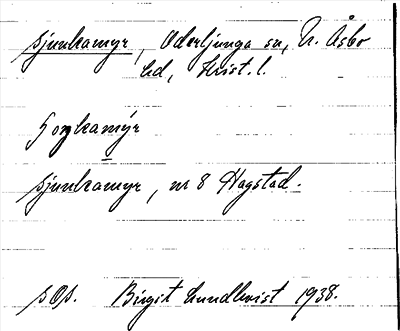 Sjunkamyr, Oderljunga sn, N. Åsbo
hd, Krist. l.
Sjunkamyr, nr 8 Hagstad.
SOS. Birgit Lundkvist 1938.